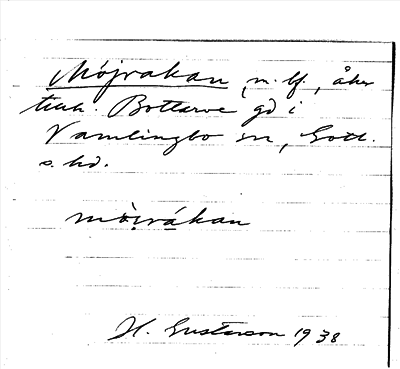 Mójvakan, m. bf., åker
tillh. Bottarve gd i
Vamlingbo sn, Gotl.
s. hd.
mòi̯vákan
H. Gustavson 1938